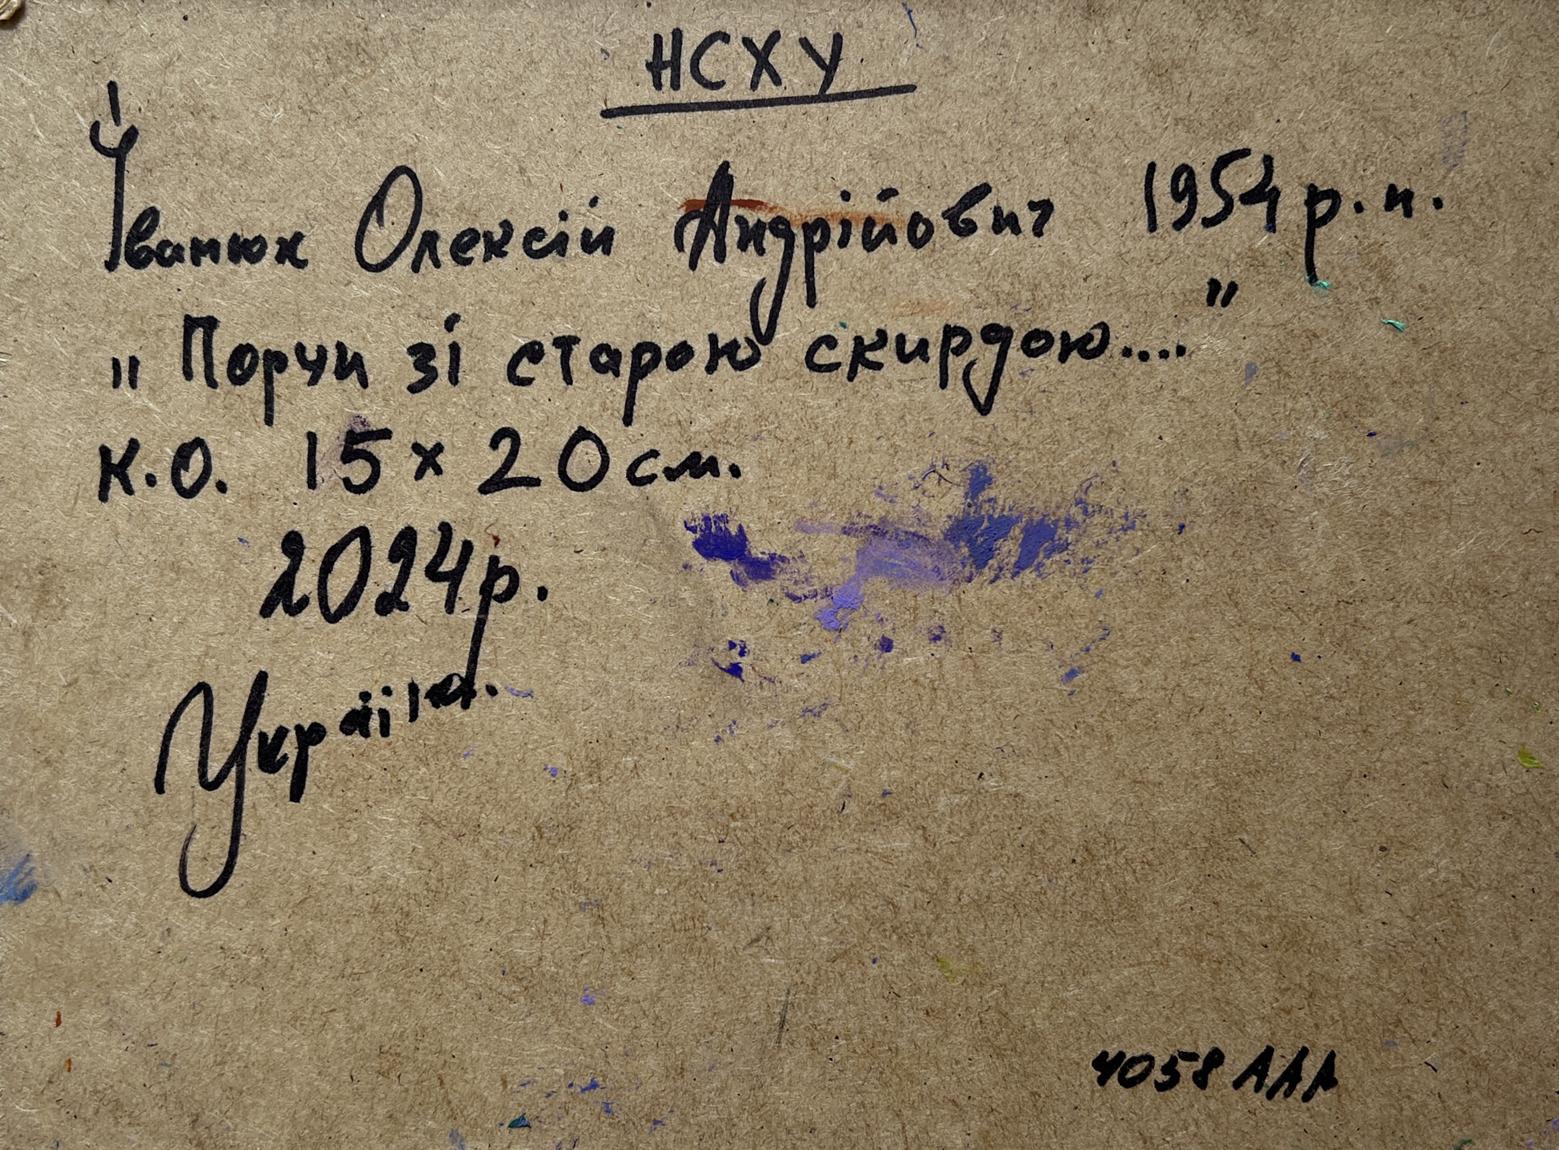 НСХУ
Іванюк Олексій Андрійович 1954 р.н.
„Поруч зі старою скирдою...."
К.О. 15 х 20 см.
2024 р.
Україна.
4058 ААА